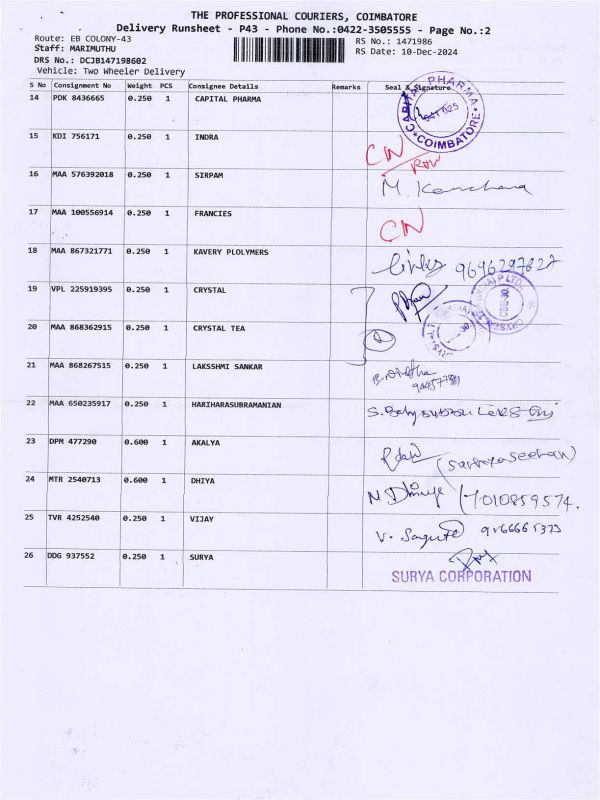 THE PROFESSIONAL COURIERS, COIMBATORE
Delivery Runsheet - P43 - Phone No.:0422-3505555 - Page No.:2
Route: EB COLONY-43
Staff: MARIMUTHU
DRS No.: DCJB147198602
Vehicle: Two Wheeler Delivery
RS No.: 1471986
RS Date: 10-Dec-2024
S No Consignment No Weight PCS Consignee Details Remarks Seal & Signature
14 PDK 8436665 0.250 1 CAPITAL PHARMA CAPITAL PHARMA COIMBATORE
15 KDI 756171 0.250 1 INDRA CN
16 MAA 576392018 0.250 1 SIRPAM M. Kanchana
17 MAA 100556914 0.250 1 FRANCIES CN
18 MAA 867321771 0.250 1 KAVERY PLOLYMERS
19 VPL 225919395 0.250 1 CRYSTAL
20 MAA 868362915 0.250 1 CRYSTAL TEA 2
21 MAA 868267515 0.250 1 LAKSSHMI SANKAR
22 MAA 650235917 0.250 1 HARIHARASUBRAMANIAN
23 DPM 477290 0.600 1 AKALYA
24 MTR 2540713 0.600 1 DHIYA 7010859574.
25 TVR 4252540 0.250 1 VIJAY
26 DDG 937552 0.250 1 SURYA
SURYA CORPORATION